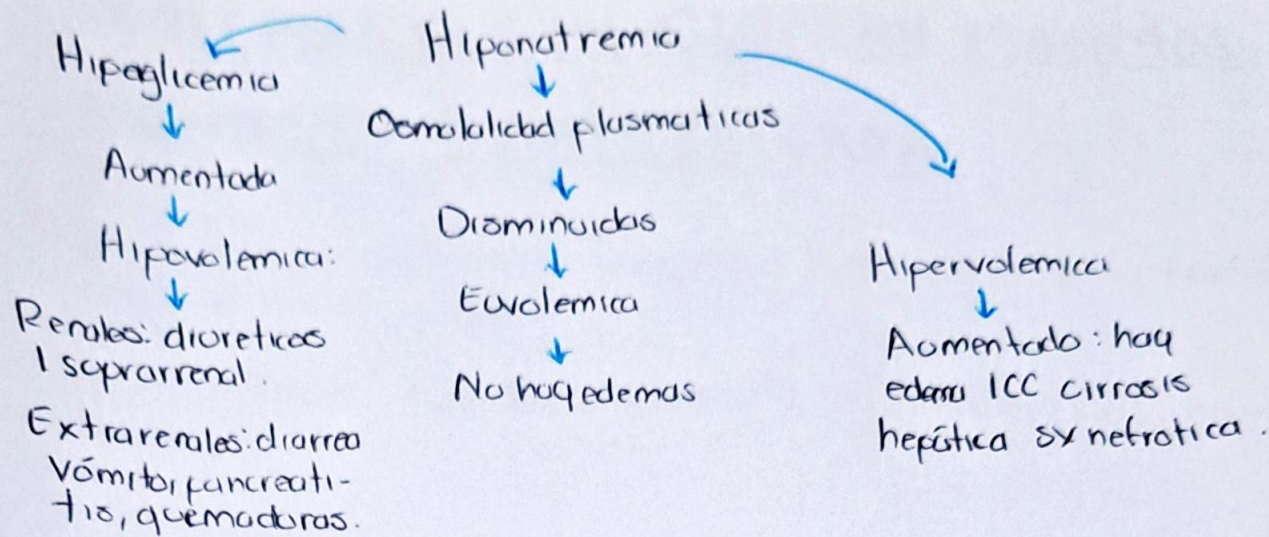 Hiponatremia
Hipoglicemia
Aumentada
Hipovolemica:
Renales: diureticos
I suprarrenal.
Extrarenales: diarrea
Vómito, pancreati-
tis, quemaduras.
Osmolalidad plasmaticas
Disminuidas
Euvolemica
No hay edemas
Hipervolemica
Aumentado: hay
edema ICC cirrosis
hepática sx nefrotica.